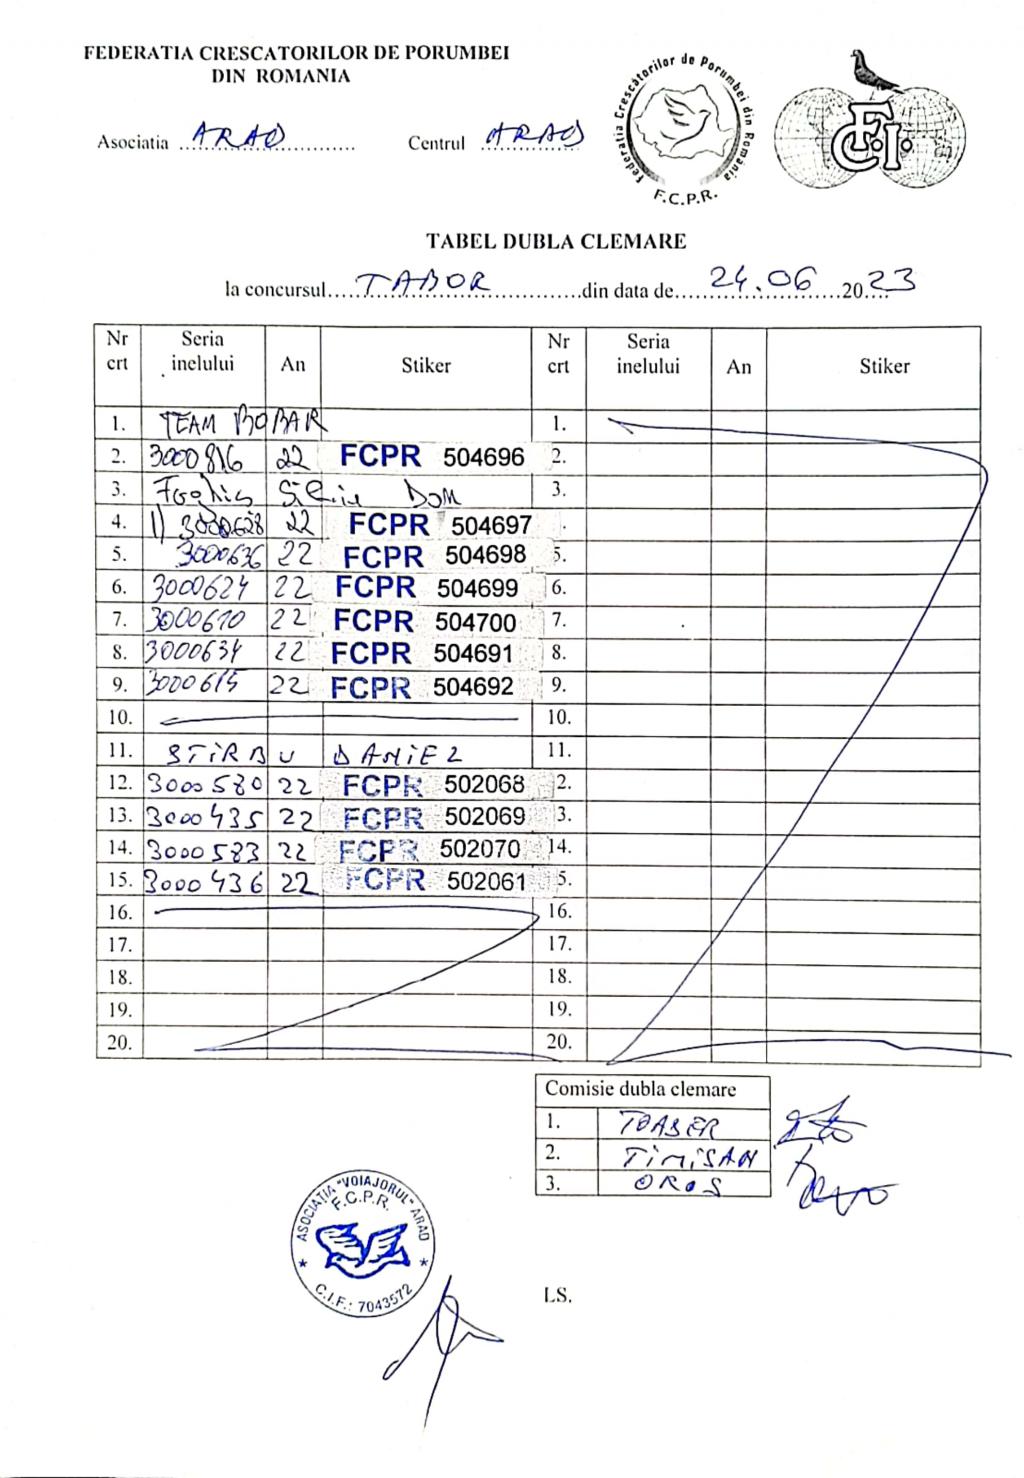 FEDERATIA CRESCATORILOR DE PORUMBEI
DIN ROMANIA
Federatia Crescătorilor de Porumbei din Romania
F.C.P.R.
F.C.I.
Asociatia ARAD Centrul ARAD
TABEL DUBLA CLEMARE
la concursul TABOR din data de 24.06 2023
Nr crt Seria inelului An Stiker Nr crt Seria inelului An Stiker
1. TEAM BOBAR 1.
2. 3000816 22 FCPR 504696 2.
3. Silviu Dom 3.
4. 1) 3000628 22 FCPR 504697 .
5. 3000636 22 FCPR 504698 5.
6. 3000624 22 FCPR 504699 6.
7. 3000610 22 FCPR 504700 7.
8. 3000634 22 FCPR 504691 8.
9. 3000615 22 FCPR 504692 9.
10. 10.
11. STIRBU DANIEL 11.
12. 3000580 22 FCPR 502068 2.
13. 3000435 22 FCPR 502069 3.
14. 3000583 22 FCPR 502070 14.
15. 3000436 22 FCPR 502061 5.
16. 16.
17. 17.
18. 18.
19. 19.
20. 20.
Comisie dubla clemare
1. TOADER
2. TIMISAN
3. OROS
ASOCIATIA "VOIAJORUL" ARAD
F.C.P.R.
C.I.F.: 7043572
LS.